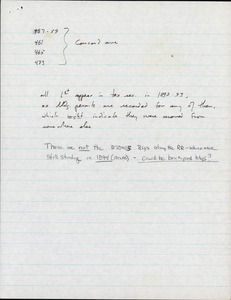 457-59
461
465
473
Concord ave
all 1st appear in tax rec. in 1892-93,
no bldg permits are recorded for any of them,
which might indicate they were moved from
somewhere else
These are not the bldgs along the RR-
still standing in 1894 (Atlas) - Could be backyard bldgs?